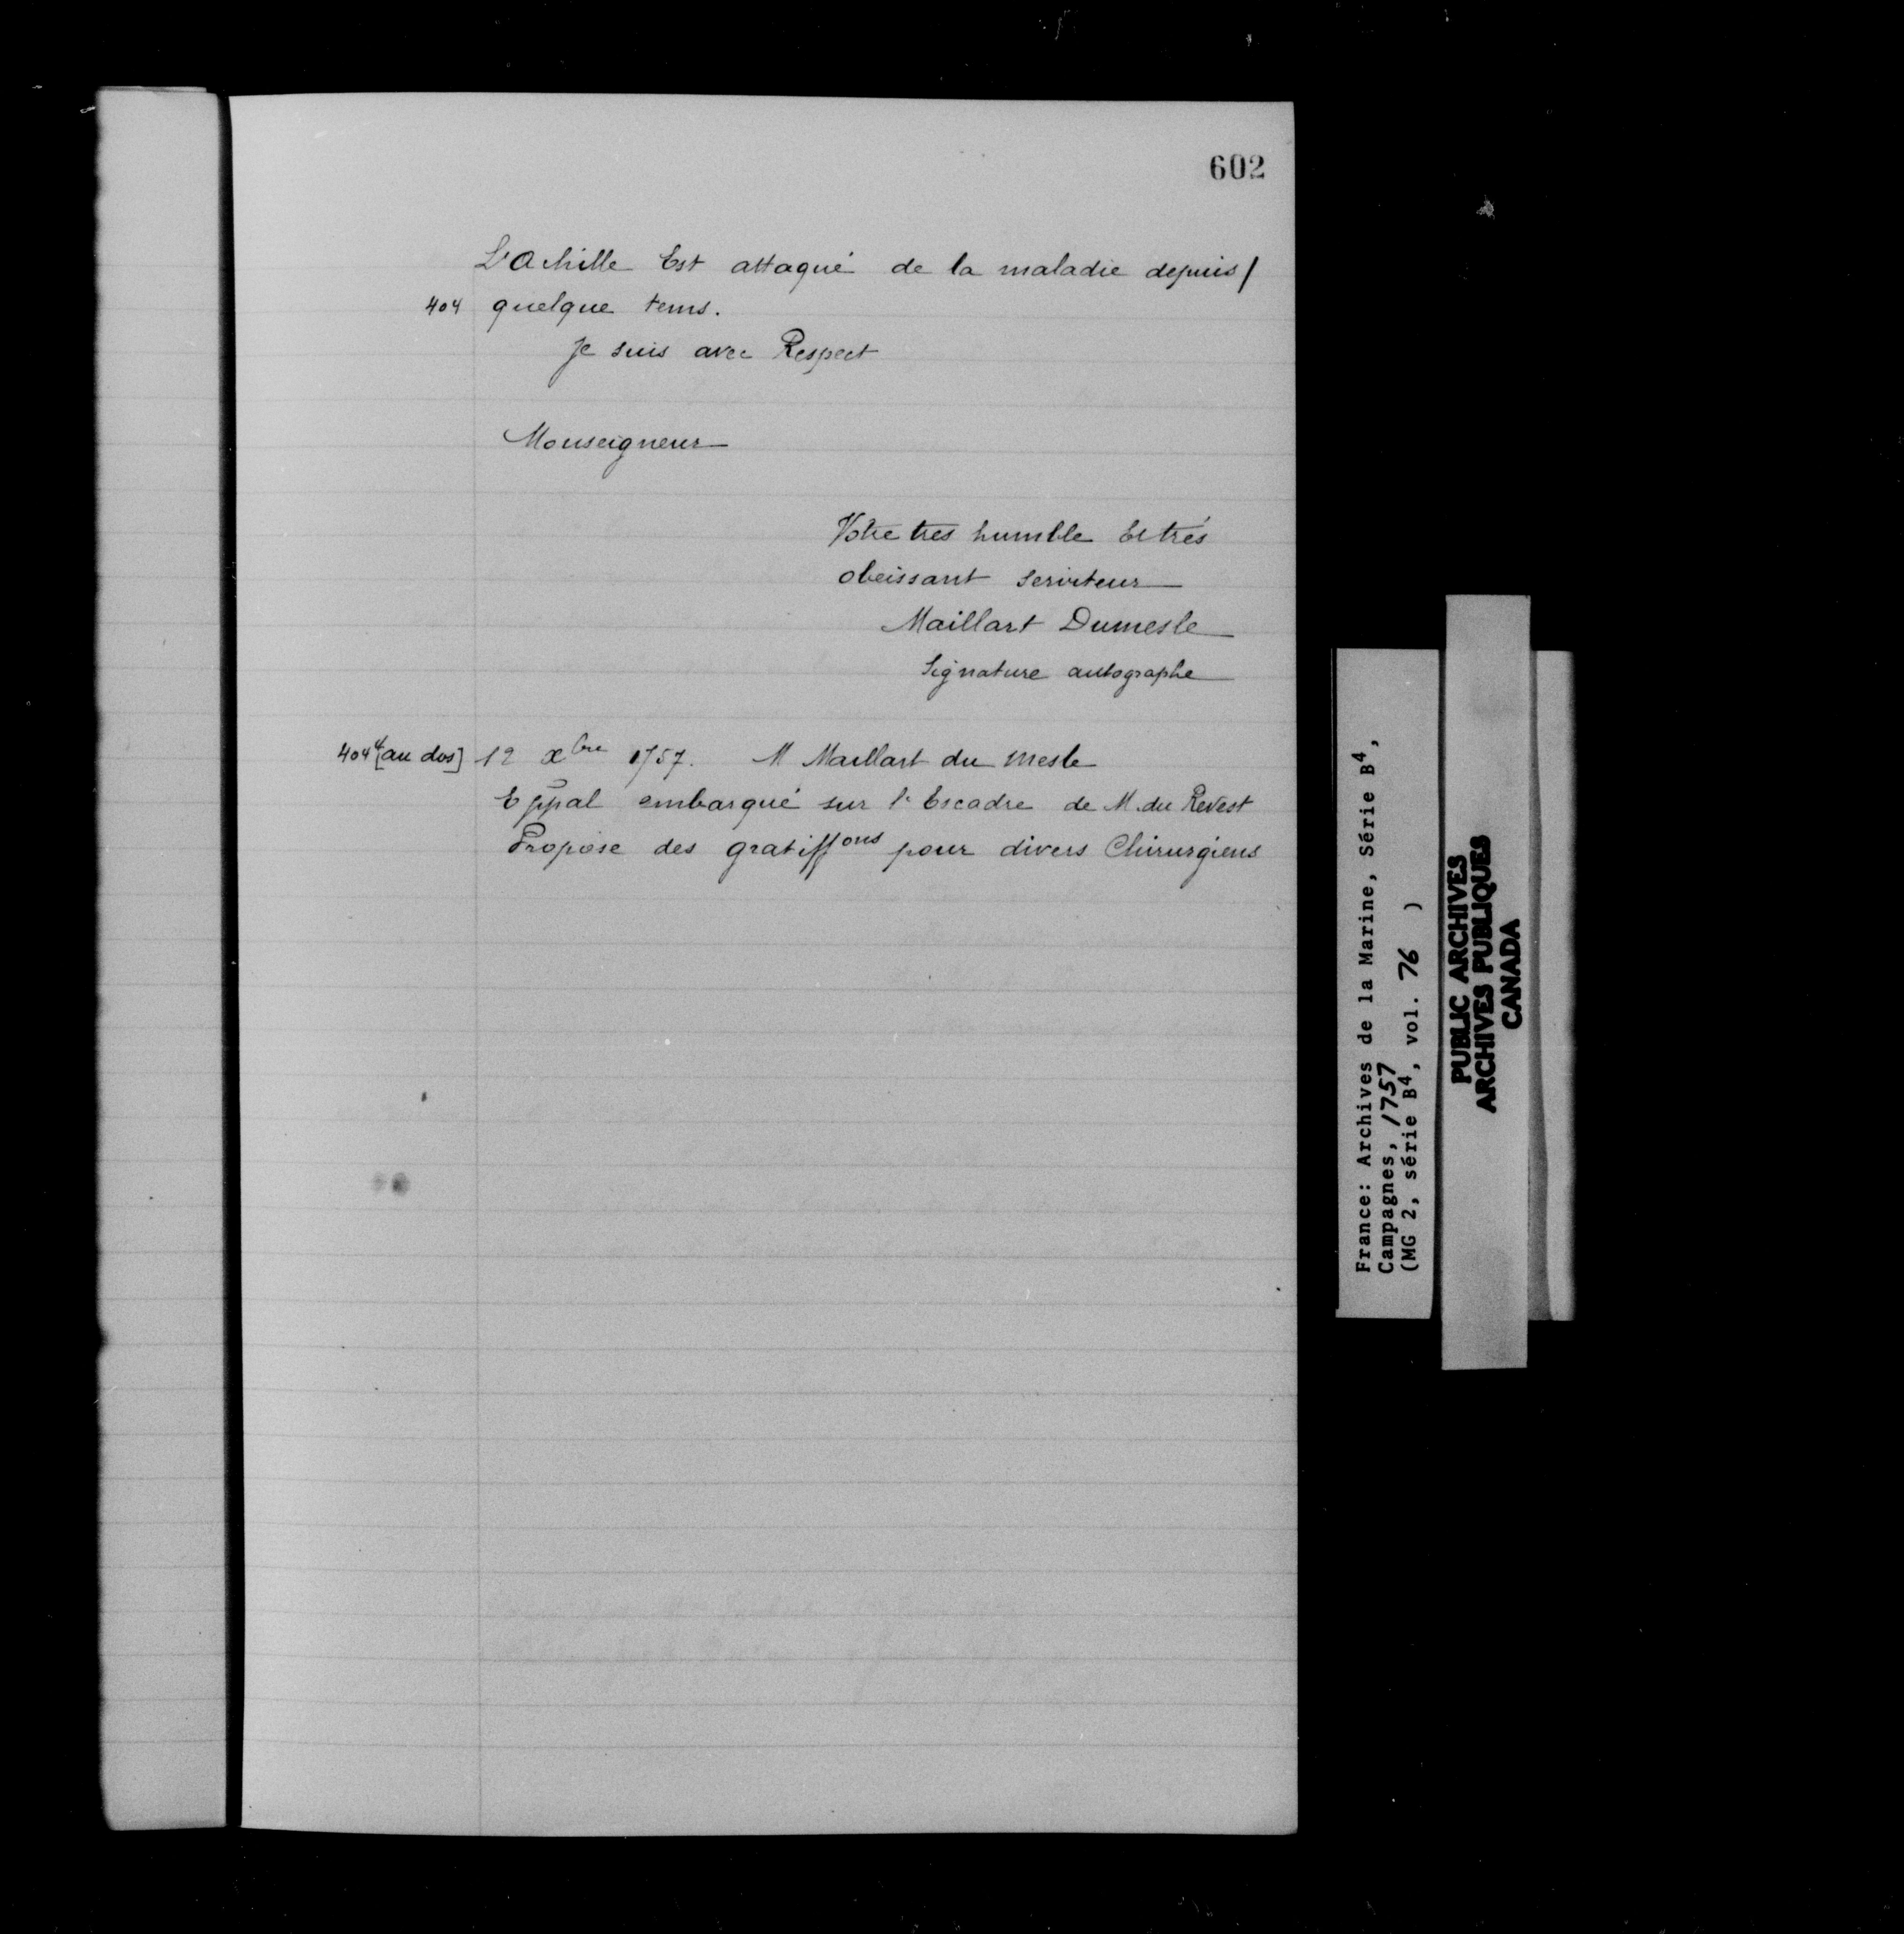 602
L'Achille Est attaqué de la maladie depuis/
404 quelque tems.
Je suis avec Respect
Monseigneur
Votre tres humble Et trés
obeissant serviteur
Maillart Dumesle
Signature autographe
404 [au dos] 12 Xbre 1757. M Maillart du Mesle
Eppal embarqué sur l'Escadre de M. du Revest
Propose des gratiffons pour divers Chirurgiens
France: Archives de la Marine, Série B4,
Campagnes, 1757
(MG 2, série B4, vol. 76 )
PUBLIC ARCHIVES
ARCHIVES PUBLIQUES
CANADA